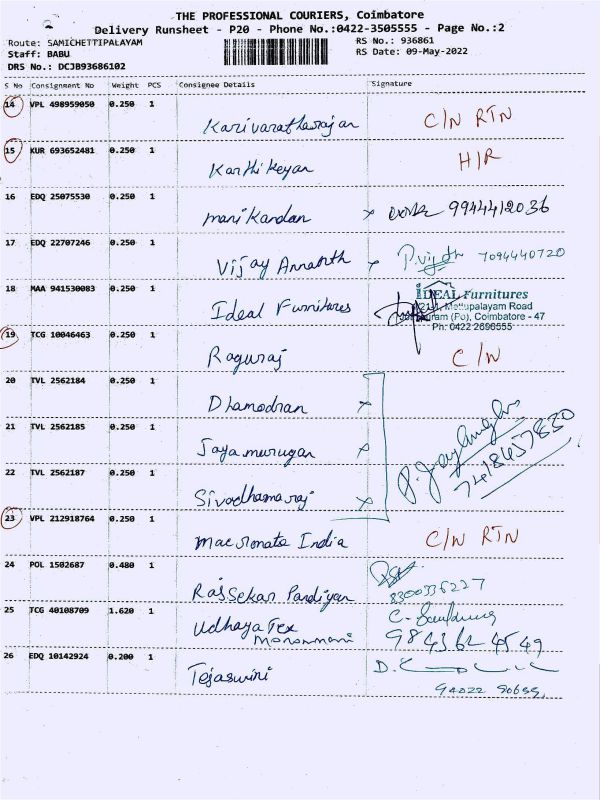 THE PROFESSIONAL COURIERS, Coimbatore
Delivery Runsheet - P20 - Phone No.:0422-3505555 - Page No.:2
Route: SAMICHETTIPALAYAM RS No.: 936861
Staff: BABU RS Date: 09-May-2022
DRS No.: DCJB93686102
S No Consignment No Weight PCS Consignee Details Signature
14 VPL 498959050 0.250 1
Karivaratharajan C/N RTN
15 KUR 693652481 0.250 1
Karthikeyan H/R
16 EDQ 25075530 0.250 1
Manikandan x 9944412036
17 EDQ 22707246 0.250 1
Vijay Annanth x P.vijth 7094440720
18 MAA 941530083 0.250 1
Ideal Furnitures
IDEAL Furnitures
Mettupalayam Road
(Po), Coimbatore - 47
Ph: 0422 2696555
19 TCG 10046463 0.250 1
Raguraj C/N
20 TVL 2562184 0.250 1
Dhamodran x
21 TVL 2562185 0.250 1
Jayamurugan x
22 TVL 2562187 0.250 1
Sivadhamaraj x
7418457830
23 VPL 212918764 0.250 1
Macronata India C/N RTN
24 POL 1502687 0.480 1
Rajsekar Pandiyan 8300336227
25 TCG 40108709 1.620 1
Udhaya Tex
Manonmani 9843624549
26 EDQ 10142924 0.200 1
Tejaswini
94022 90699